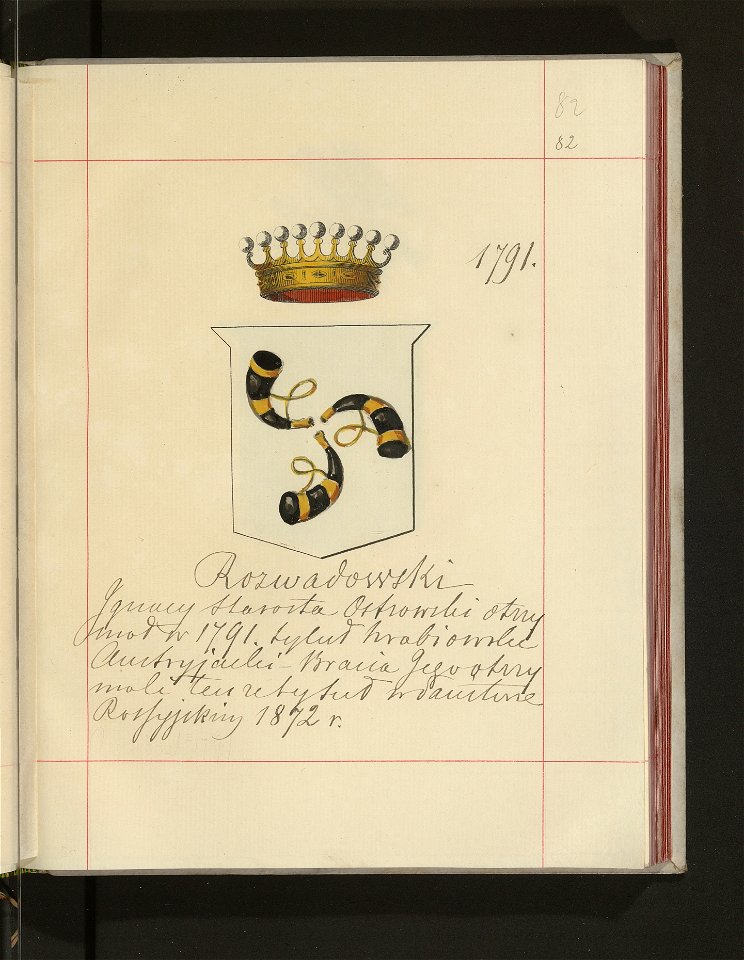 82
82
1791.
Rozwadowski
Ignacy Starosta Ostrowski otrzy
mał w 1791. tytuł hrabiowski
Austryjacki - Bracia Jego otrzy
mali ten
Rossyjskim 1872 r.